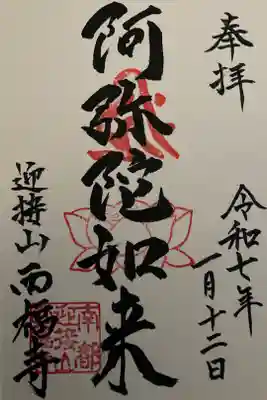 奉拝
令和七年
一月十二日
阿弥陀如来
迎接山 西福寺